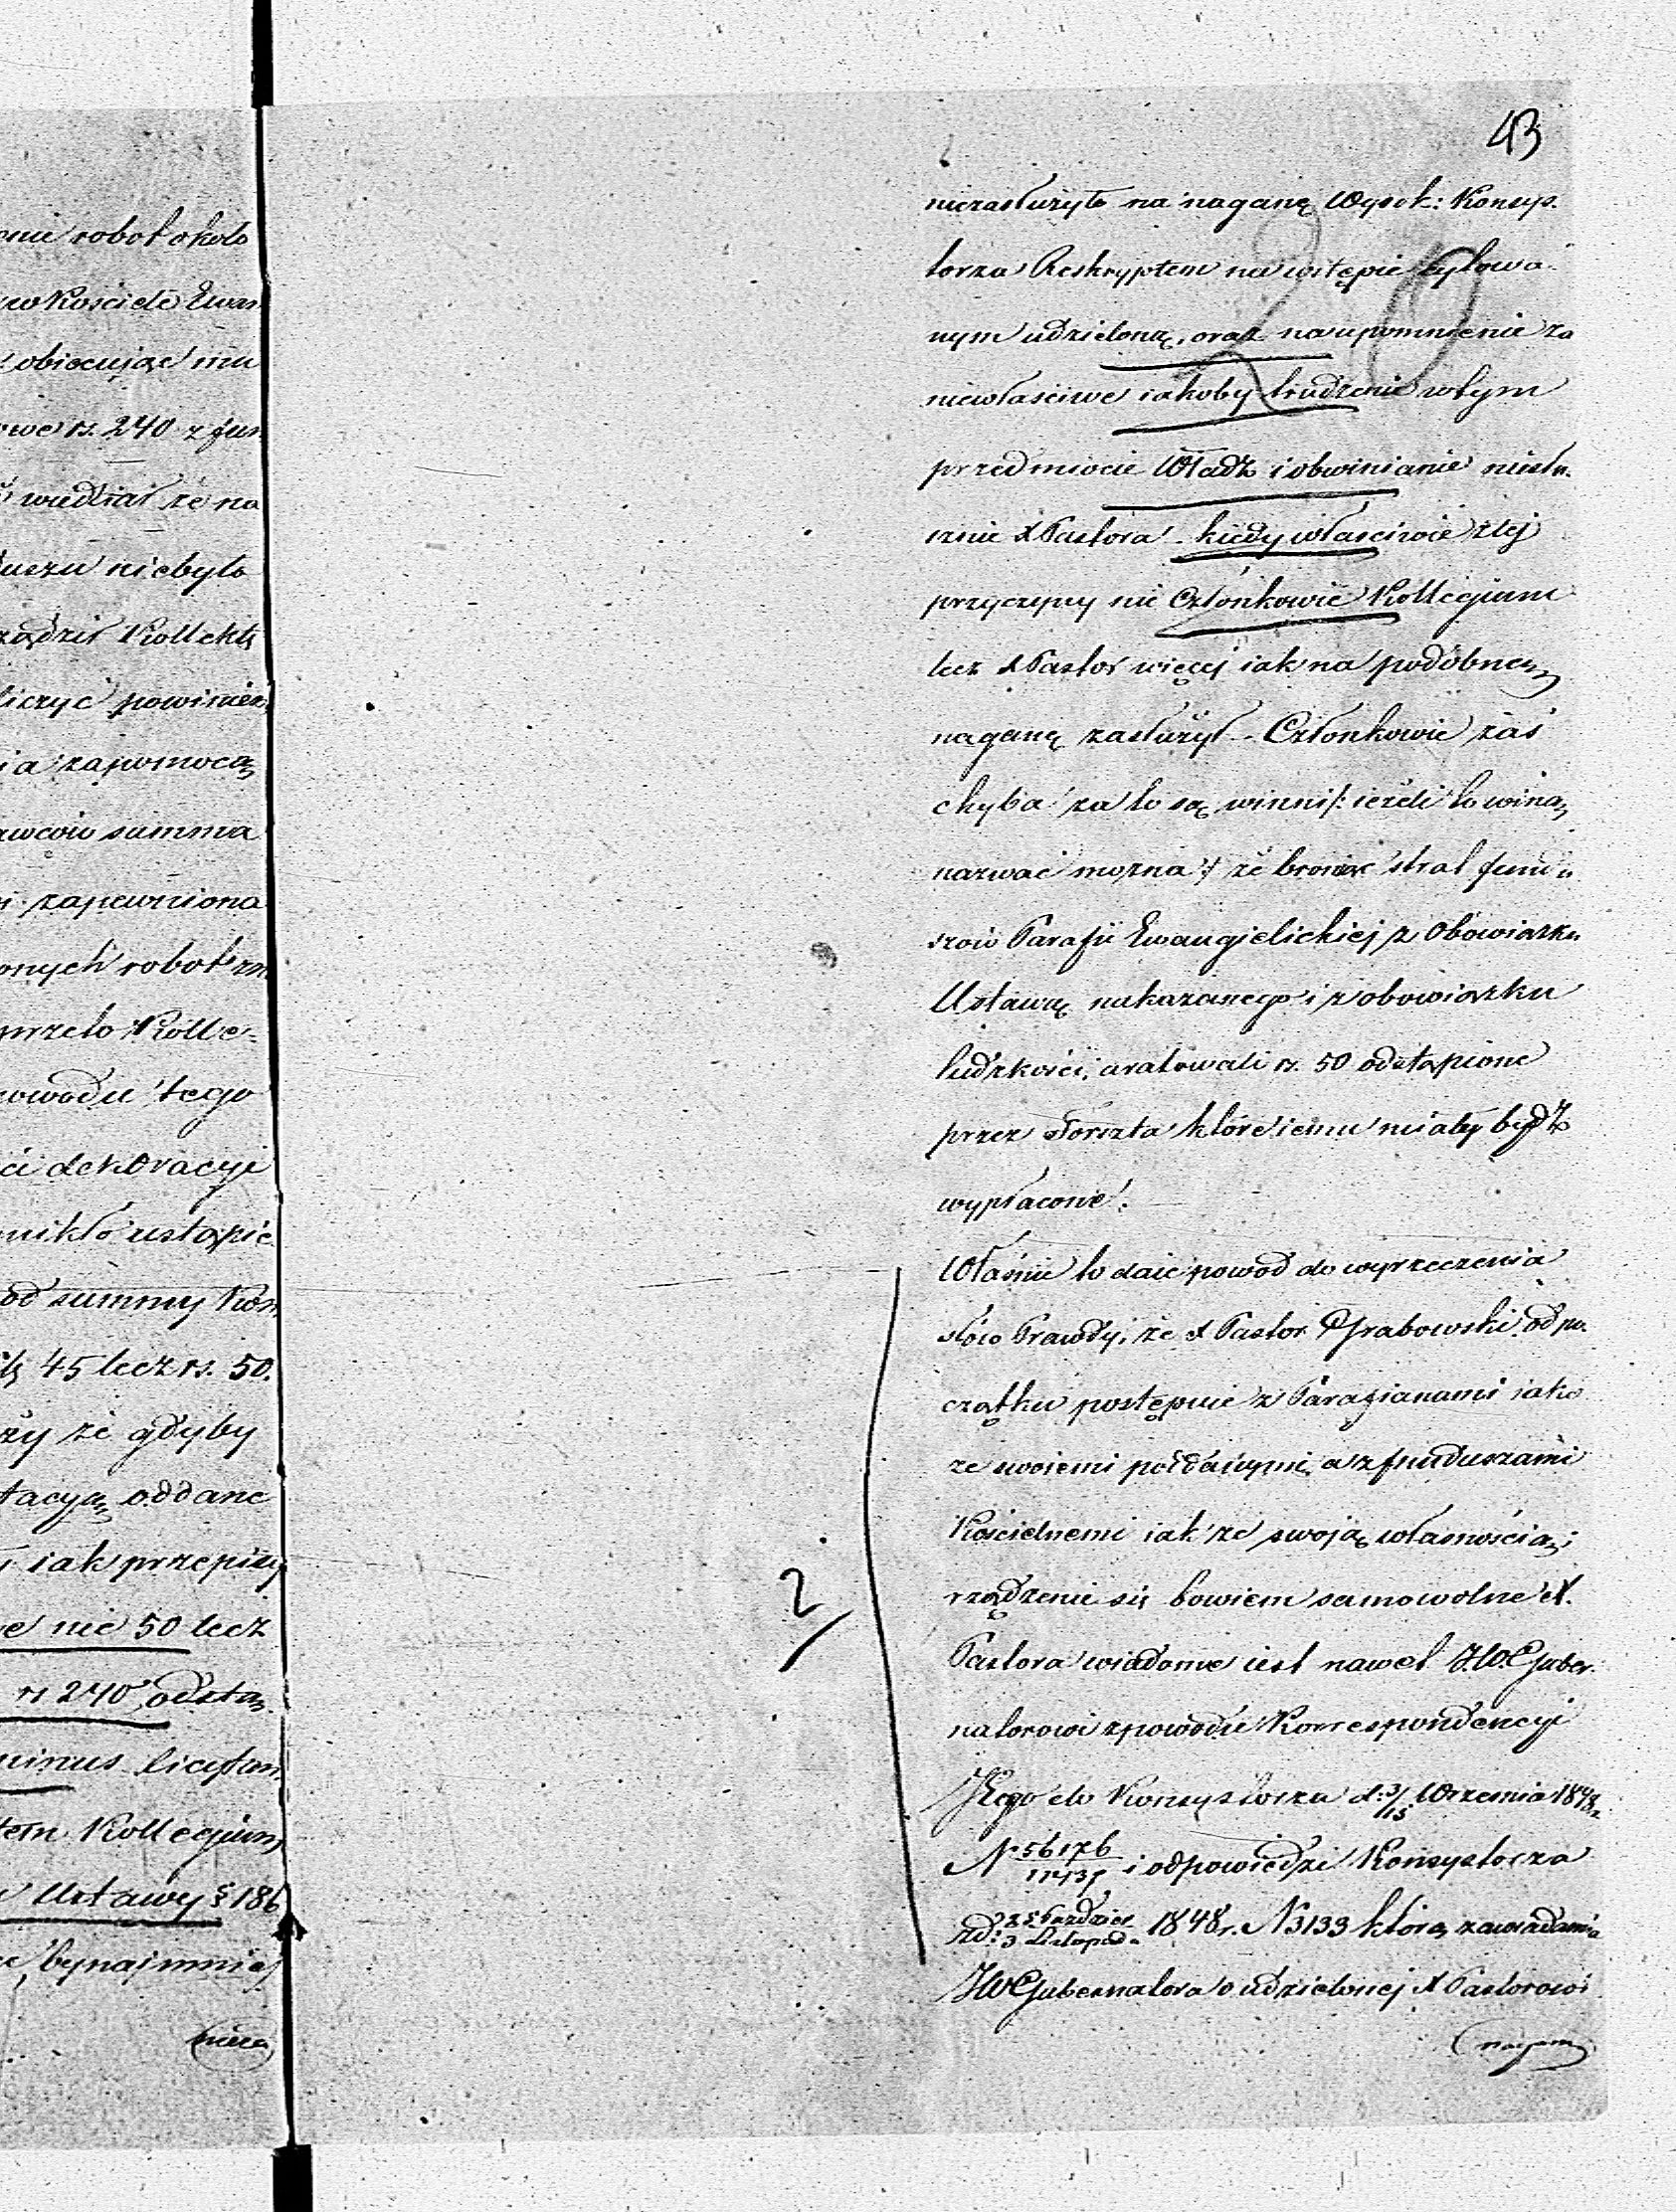 enie robot około
w Kościele Ewan
obiecując mu
rs. 240 z fun
wiedział że na
duszu niebyło
rządził Kollektę
liczyć powinien
ia zapomocą
awców summa
i zapewniona
onych robot
przeto Kolle-
powodu tego
ci dekoracyi
nikt ustąpić
od summy
45 lecz rs. 50.
że gdyby
tacyą oddane
iak przepisy
nie 50 lecz
rs 240 odstą
minus licytum
tem Kollegium
Ustawy § 186
bynajmniej
nieza
43
20
niezasłużyło na naganę Wysok: Konsys.
torza Reskryptem na wstępie cytowa-
nym udzieloną, oraz na upomnienie za
niewłaściwe iakoby trudzenie wtym
przedmiocie Władz i obwinianie niesłu-
sznie X Pastora - kiedy właściwie ztej
przyczyny nie Członkowie Kollegium
lecz X Pastor więcej iak na podobną
naganę zasłużył - Członkowie zaś
chyba za to są winni /: ieżeli to winą
nazwać można :/ że broniąc strat fundu
szów Parafii Ewangielickiej z Obowiązku
Ustawą nakazanego i z obowiązku
ludzkości, uratowali rs. 50 odstąpione
przez Forszta które iemu miały bydź
wypłacone.
Właśnie to daie powod do wyrzeczenia
słów Prawdy, że X Pastor Grabowski od po-
czątku postępuie z Parafianami iako
ze swoiemi poddanymi, a z funduszami
Kościelnemi iak ze swoją własnością;
rządzenie się bowiem samowolne X.
Pastora wiadome iest nawet J.W. Guber-
natorowi z powodu Korrespondencyi
2/
Jego do Konsystorza d: 3/15 Września 1848 r.
N 56176/11437 i odpowiedzi Konsystorza
zd: 22 Paździer/3 Listopad. 1848 r. N 3133 którą zawiadamia
JW Gubernatora o udzielonej X Pastorowi
nagan